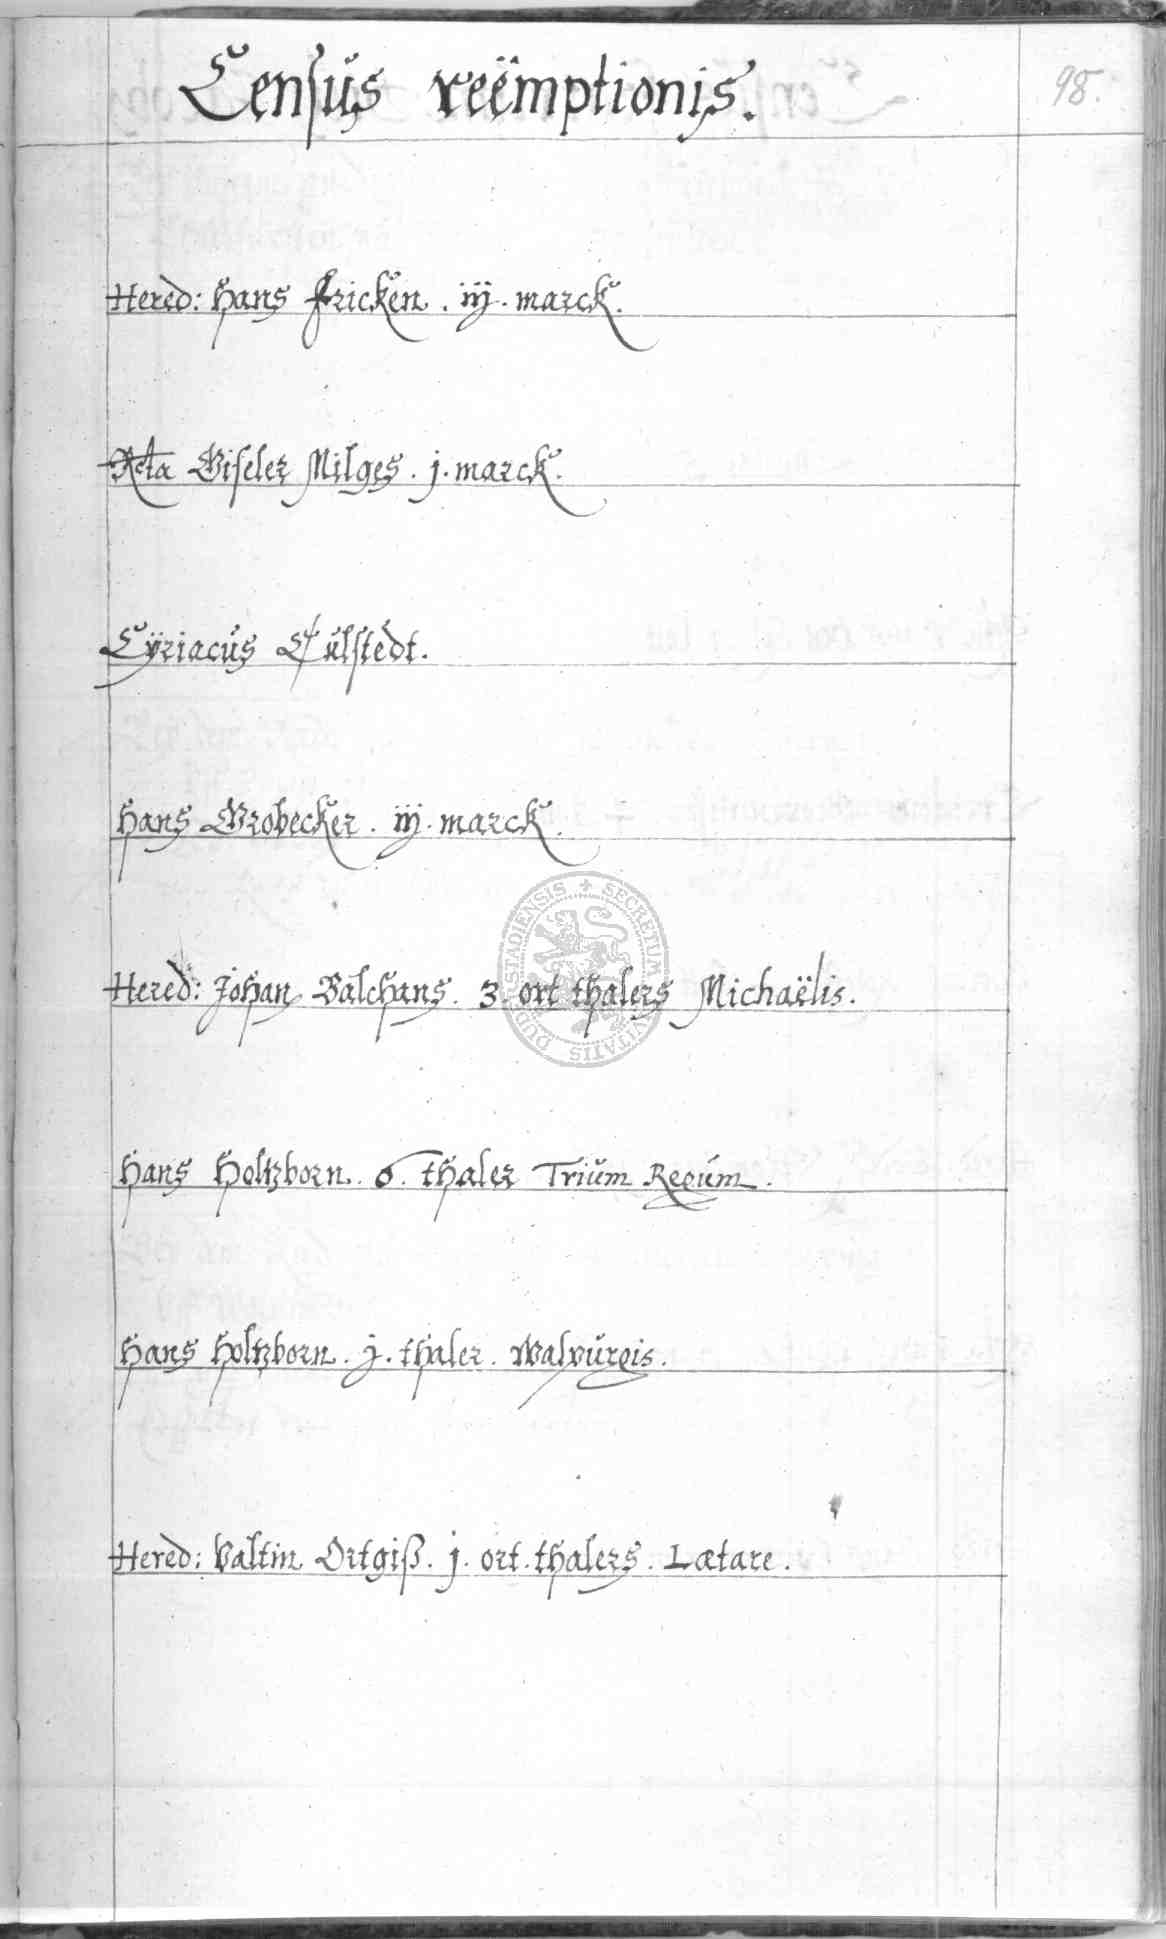 Censùs reëmptionis.
98.
Hered: Hans Fricken . iij . marck.
Relicta Giseler Milges . j . marck.
Cÿriacùs Külstedt.
Hans Grobecker . iij . marck.
Hered: Johan Balchans . 3 . ort thalers Michaëlis.
Hans Holtzborn . 6 . thaler Triùm Regùm .
Hans Holtzborn . j . thaler . Walpùrgis.
Hered: Valtin Ortgiß . j . ort . thalers . Lætare.
SECRETUM CIVITATIS DUDERSTADIENSIS